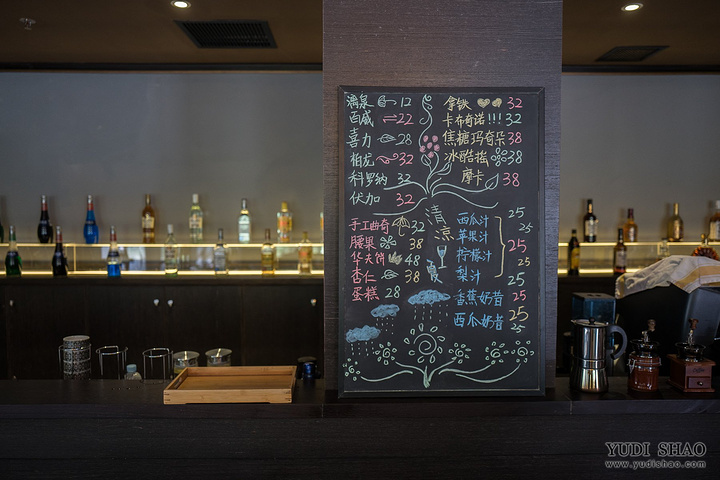 漓泉 12
百威 22
喜力 28
柏龙 32
科罗纳 32
伏加 32
手工曲奇 32
腰果 38
华夫饼 48
杏仁 38
蛋糕 28
拿铁 32
卡布奇诺!!! 32
焦糖玛奇朵 38
冰酷摇 38
摩卡 38
清凉
西瓜汁 25
苹果汁 25
柠檬汁 25
梨汁 25
香蕉奶昔 25
西瓜奶昔 25
YUDI SHAO
www.yudishao.com